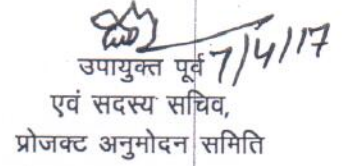 7/4/17
उपायुक्त पूर्व
एवं सदस्य सचिव,
प्रोजक्ट अनुमोदन समिति